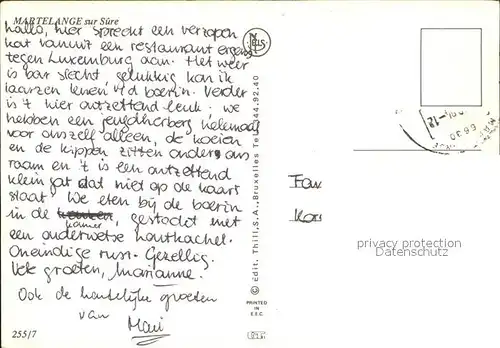 MARTELANGE sur Sûre
hallo, hier spreekt een verzopen
kat vanuit een restaurant ergens
tegen Luxemburg aan. Het weer
is bar slecht, gelukkig kan ik
laarzen lenen v/d boerin. Verder
is 't hier ontzettend leuk. We
hebben een jeugdherberg helemaal
voor onszelf alleen, de koeien
en de kippen zitten onder ons
raam en 't is een ontzettend
klein gat dat niet op de kaart
staat. We eten bij de boerin
in de kamer, gestookt met
een ouderwetse houtkachel.
Oneindige rust. Gezellig.
Vele groeten, Marianne.
Ook de hartelijke groeten
van
255/7
© Édit. Thill, S.A., Bruxelles Tel. 344.92.40
PRINTED
IN
E.E.C.
Fam
privacy protection
Datenschutz